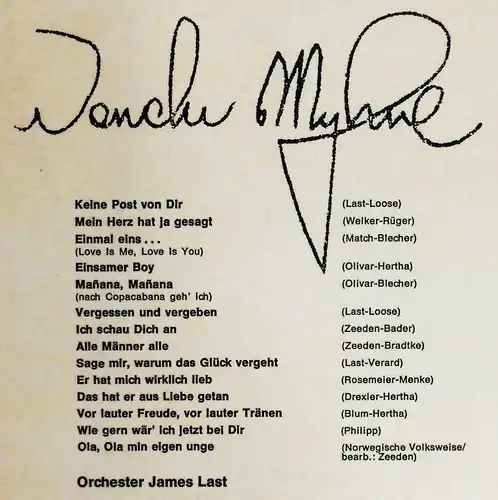 Wencke Myhre
Keine Post von Dir (Last-Loose)
Mein Herz hat ja gesagt (Welker-Rüger)
Einmal eins . . . (Match-Blecher)
(Love Is Me, Love Is You)
Einsamer Boy (Olivar-Hertha)
Mañana, Mañana (Olivar-Blecher)
(nach Copacabana geh' ich)
Vergessen und vergeben (Last-Loose)
Ich schau Dich an (Zeeden-Bader)
Alle Männer alle (Zeeden-Bradtke)
Sage mir, warum das Glück vergeht (Last-Verard)
Er hat mich wirklich lieb (Rosemeier-Menke)
Das hat er aus Liebe getan (Drexler-Hertha)
Vor lauter Freude, vor lauter Tränen (Blum-Hertha)
Wie gern wär' ich jetzt bei Dir (Philipp)
Ola, Ola min eigen unge (Norwegische Volksweise/
bearb.: Zeeden)
Orchester James Last